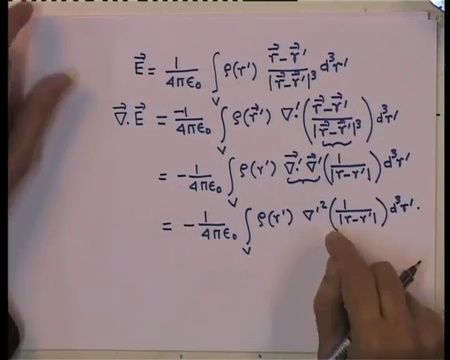 \vec{E} = \frac{1}{4\pi\epsilon_0} \int_V \rho(r') \frac{\vec{r}-\vec{r}'}{|\vec{r}-\vec{r}'|^3} d^3r'
\vec{\nabla}.\vec{E} = \frac{-1}{4\pi\epsilon_0} \int_V \rho(\vec{r}') \nabla'.\left(\frac{\vec{r}-\vec{r}'}{|\vec{r}-\vec{r}'|^3}\right) d^3r'
= -\frac{1}{4\pi\epsilon_0} \int_V \rho(r') \vec{\nabla}'.\vec{\nabla}'\left(\frac{1}{|r-r'|}\right) d^3r'
= -\frac{1}{4\pi\epsilon_0} \int_V \rho(r') \nabla'^2\left(\frac{1}{|r-r'|}\right) d^3r'.